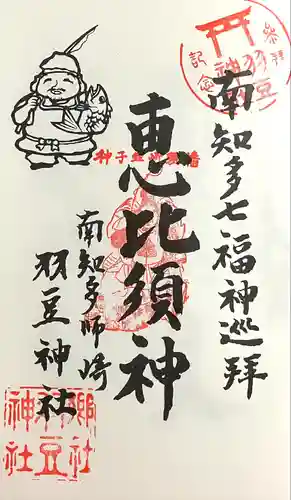 南知多七福神巡拝
恵比須神
南知多師崎
羽豆神社
参拝
記念
羽豆神
郷社
羽豆
神社